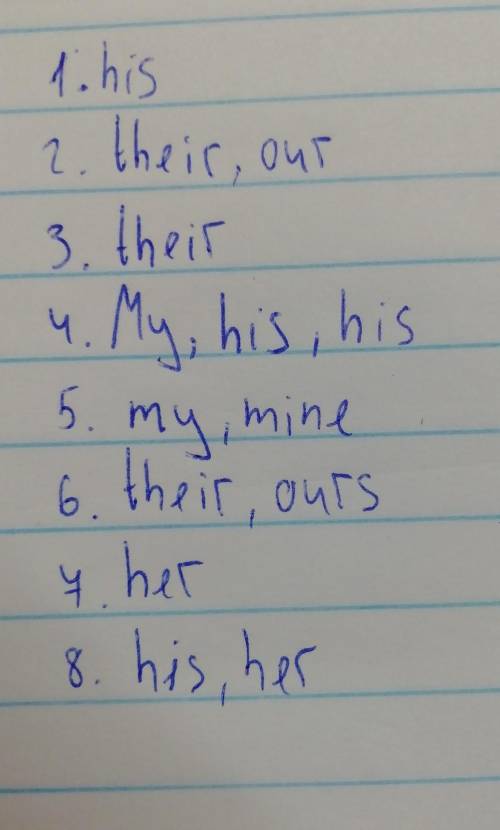 1. his
2. their, our
3. their
4. My, his, his
5. my, mine
6. their, ours
7. her
8. his, her